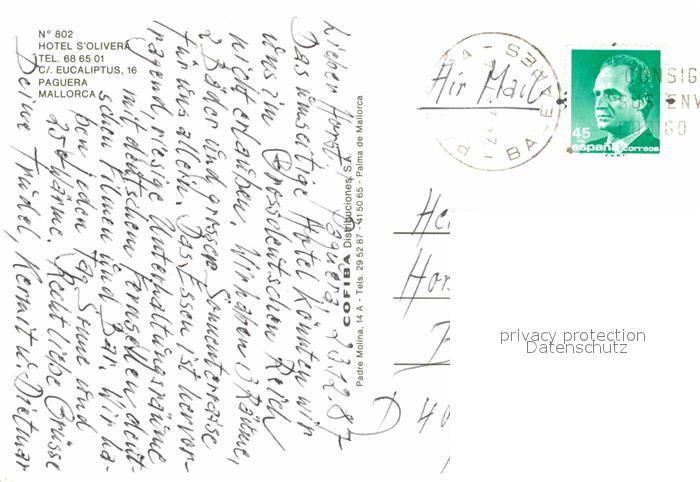 N° 802
HOTEL S'OLIVERA
TEL. 68 65 01
C/. EUCALIPTUS, 16
PAGUERA
MALLORCA
Paguera, 23.12.87
Lieber Horst!
Das umseitige Hotel könnten wir
uns im Grossdeutschen Reich
nicht erlauben. Wir haben 3 Räume,
2 Bäder und grosse Sonnenterrasse
für uns allein. Das Essen ist hervor-
ragend, riesige Unterhaltungsräume
mit deutschem Fernsehen, deut-
schen Filmen und Bar. Wir ha-
ben jeden Tag Sonne und
25° Wärme. Recht liebe Grüsse
Deine Trudel, Kermit u. Dietmar
COFIBA Distribuciones, S.A.
Padre Molina, 14 A - Tels. 29 52 87 - 41 50 65 - Palma de Mallorca
Air Mail
BALEARES
CONSIG
SUS ENV
45
españa correos
F.N.M.T.
He
Hor
D 40
privacy protection
Datenschutz